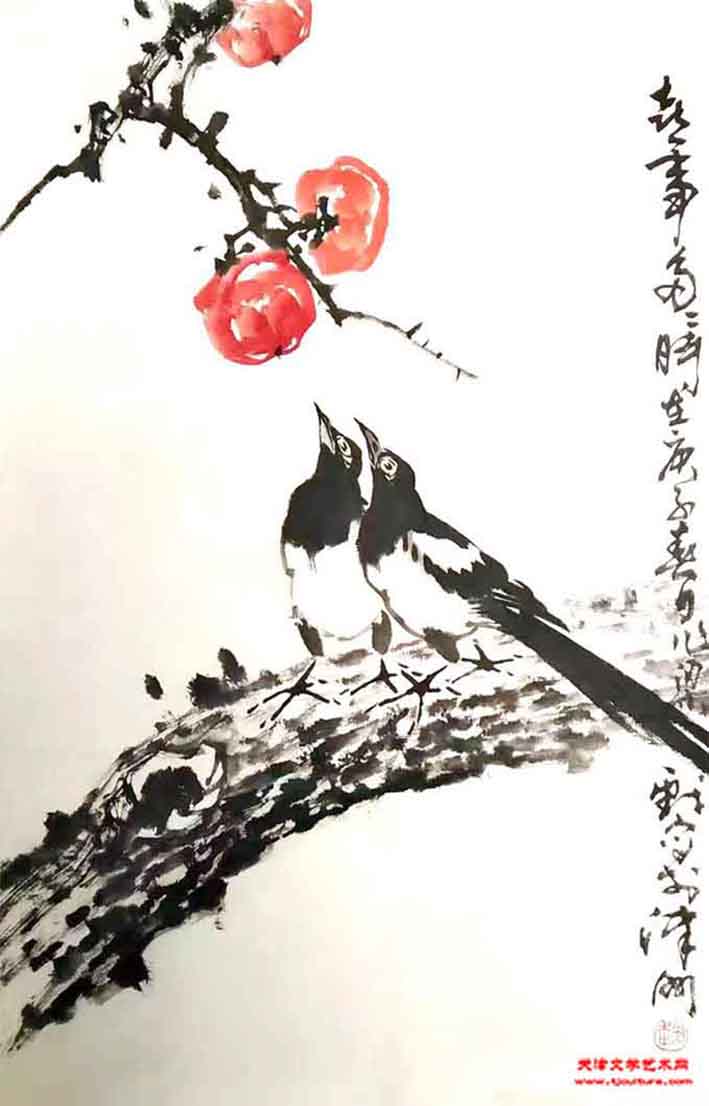 喜事多〻時在庚子春月写於津
天津文学艺术网
www.tjculture.com